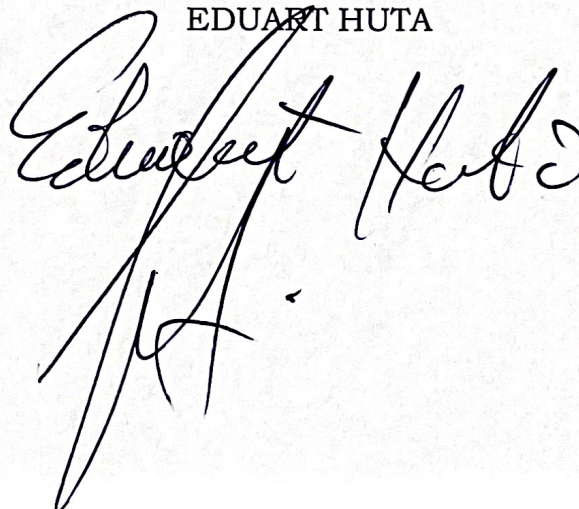 EDUART HUTA
Eduart Huta